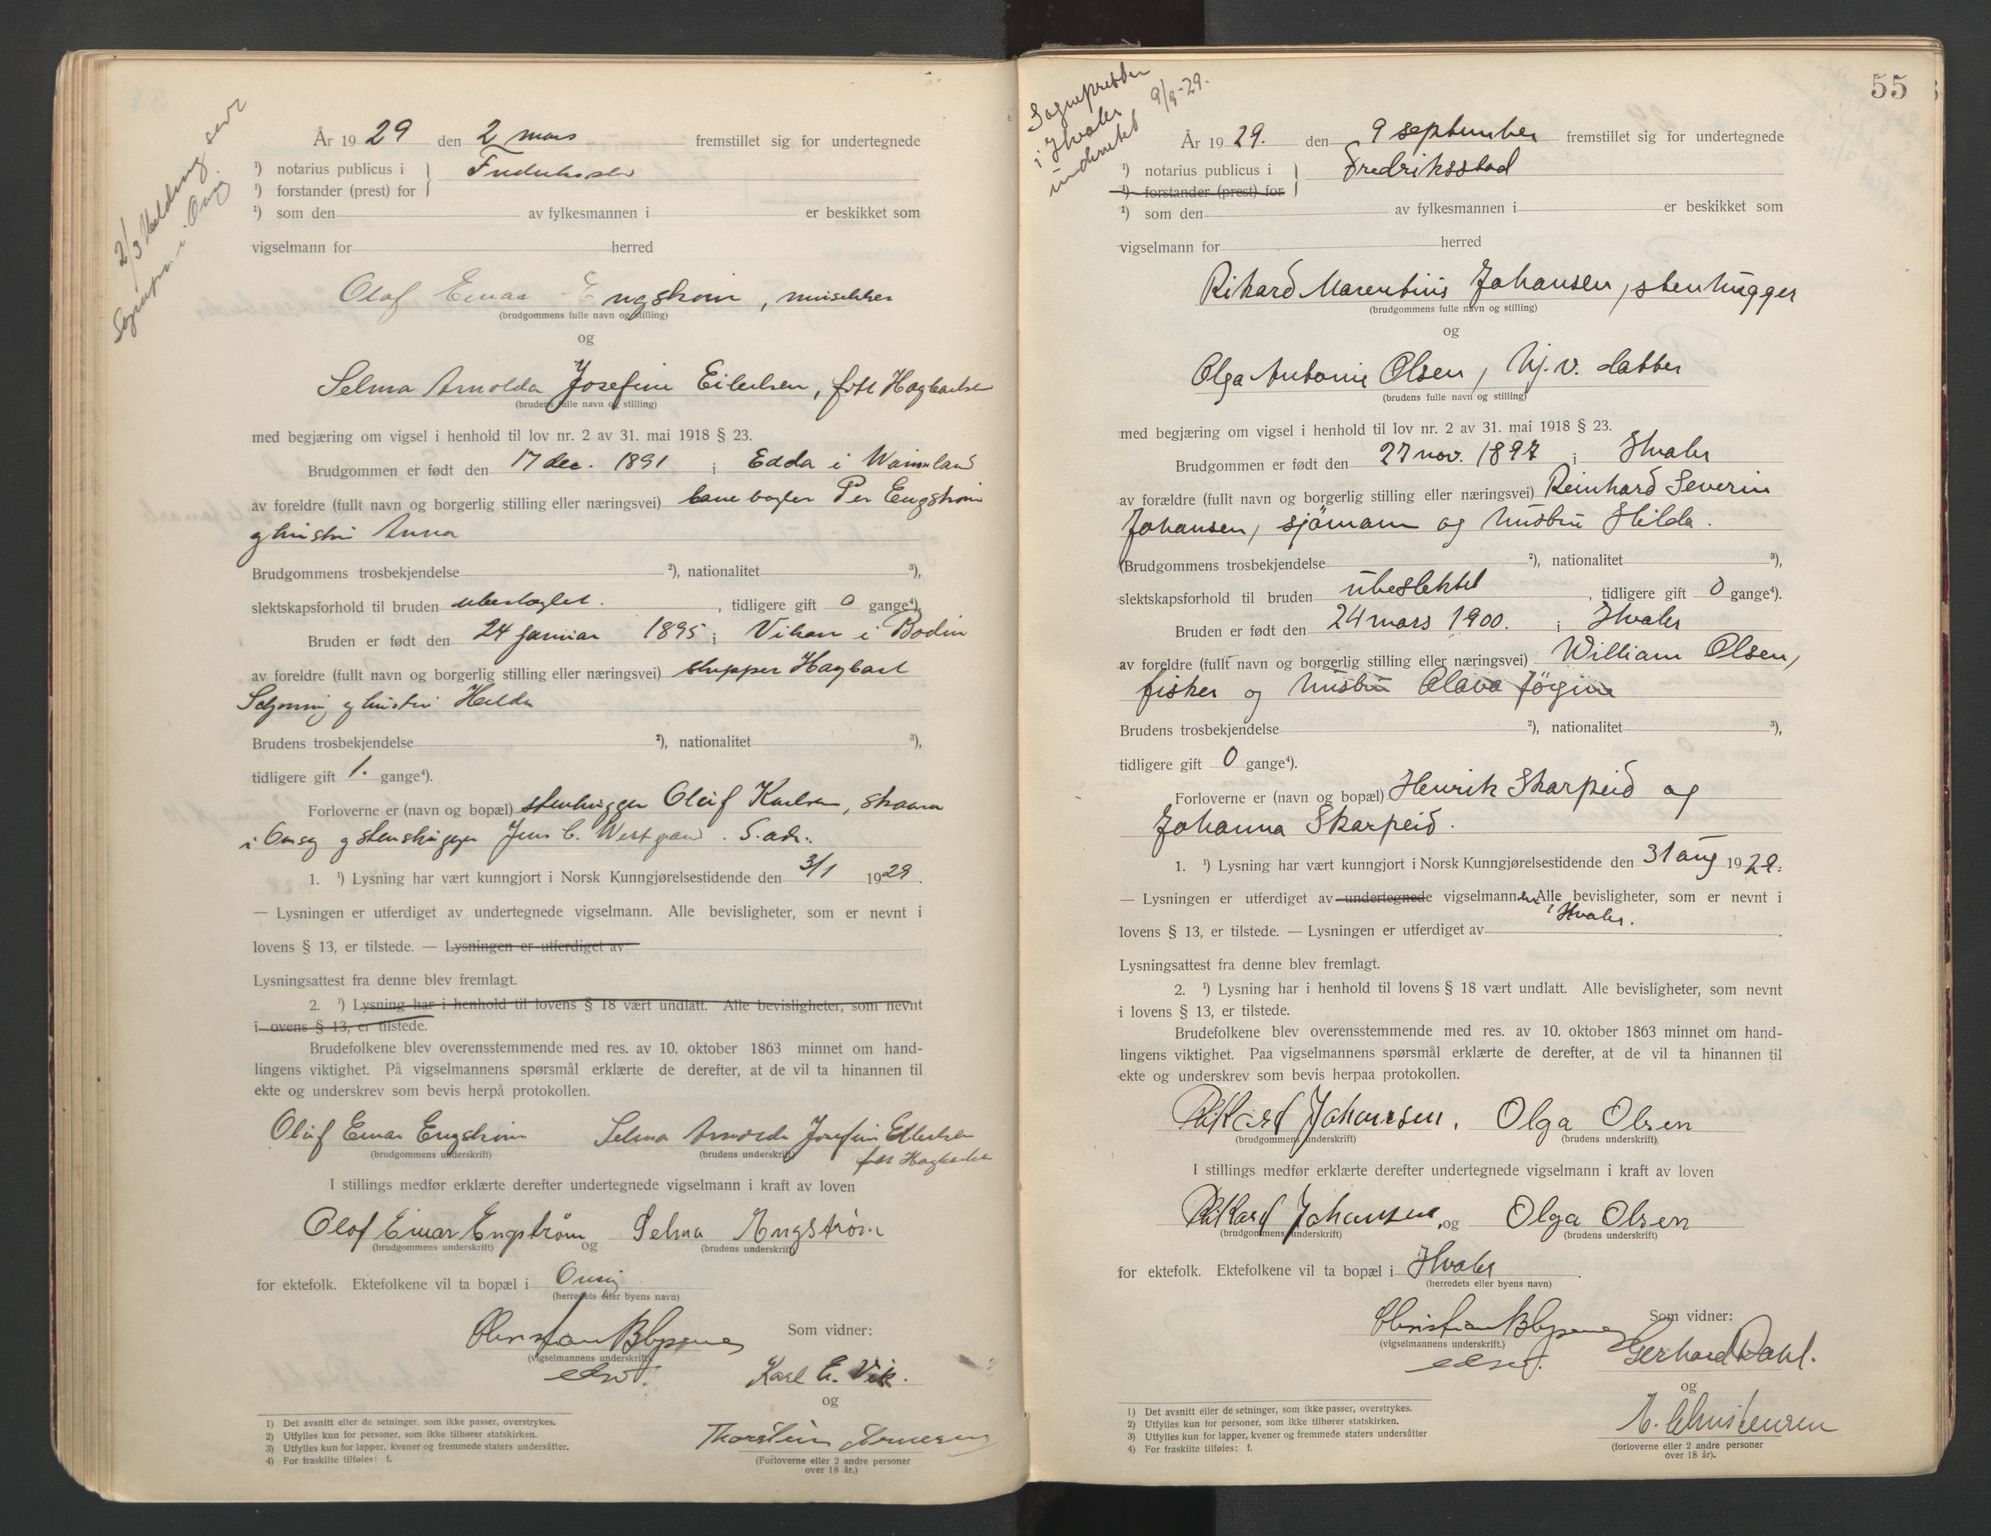 2/3 Melding
Sogneprs. i Onsø
År 1929 den 2 mars fremstillet sig for undertegnede
¹) notarius publicus i
¹) forstander (prest) for
¹) som den av fylkesmannen i er beskikket som
vigselmann for herred
Olaf Einar Engstrøm,
(brudgommens fulle navn og stilling)
og
Selma Arnolda Josefine Eilertsen, født Hagbartsen
(brudens fulle navn og stilling)
med begjæring om vigsel i henhold til lov nr. 2 av 31. mai 1918 § 23.
Brudgommen er født den 17 dec. 1891 i Edda i Wärmland
av foreldre (fullt navn og borgerlig stilling eller næringsvei) Per Engstrøm
og hustru Anna
Brudgommens trosbekjendelse ²), nationalitet ³),
slektskapsforhold til bruden ubeslægtet. , tidligere gift 0 gange⁴).
Bruden er født den 24 januar 1895 i Vikan i Bodin
av foreldre (fullt navn og borgerlig stilling eller næringsvei) skipper Hagbart
og hustru Helda
Brudens trosbekjendelse ²), nationalitet ³),
tidligere gift 1. gange⁴).
Forloverne er (navn og bopæl) stenhugger Oluf Karlsen,
i Onsøy og stenhugger Jens C. Westgaard. S. adr.
1. ¹) Lysning har vært kunngjort i Norsk Kunngjørelsestidende den 3/1 1929.
— Lysningen er utferdiget av undertegnede vigselmann. Alle bevisligheter, som er nevnt i
lovens § 13, er tilstede. — Lysningen er utferdiget av
Lysningsattest fra denne blev fremlagt.
2. ¹) Lysning har i henhold til lovens § 18 vært undlatt. Alle bevisligheter, som nevnt
i lovens § 13, er tilstede.
Brudefolkene blev overensstemmende med res. av 10. oktober 1863 minnet om hand-
lingens viktighet. På vigselmannens spørsmål erklærte de derefter, at de vil ta hinannen til
ekte og underskrev som bevis herpå protokollen.
Oluf Einar Engstrøm Selma Arnolda Josefin Eilertsen
(brudgommens underskrift) (brudens underskrift)
født Hagbartsen
I stillings medfør erklærte derefter undertegnede vigselmann i kraft av loven
Olof Einar Engstrøm og Selma Engstrøm
(brudgommens underskrift) (brudens underskrift)
for ektefolk. Ektefolkene vil ta bopæl i Onsøy
(herredets eller byens navn)
Som vidner:
(vigselmannens underskrift)
Karl E. Vik.
og
Thorstein Arnesen
(Forloverne eller 2 andre personer
over 18 år.)
1) Det avsnitt eller de setninger, som ikke passer, overstrykes.
2) Utfylles kun for personer, som ikke tilhører statskirken.
3) Utfylles kun for lapper, kvener og fremmede staters undersåtter.
4) For fraskilte tilføies: f.
55
Sognepresten
i Hvaler
underrettet 9/9-29.
År 1929. den 9 september fremstillet sig for undertegnede
¹) notarius publicus i Fredriksstad
¹) forstander (prest) for
¹) som den av fylkesmannen i er beskikket som
vigselmann for herred
Rikard Marentius Johansen, stenhugger
(brudgommens fulle navn og stilling)
og
Olga Antonie Olsen, hj. v. datter
(brudens fulle navn og stilling)
med begjæring om vigsel i henhold til lov nr. 2 av 31. mai 1918 § 23.
Brudgommen er født den 27 nov. 1897 i Hvaler
av forældre (fullt navn og borgerlig stilling eller næringsvei) Reinhard Severin
Johansen, sjömann og hustru Hilda.
Brudgommens trosbekjendelse ²), nationalitet ³),
slektskapsforhold til bruden ubeslektet , tidligere gift 0 gange⁴).
Bruden er født den 24 mars 1900. i Hvaler
av foreldre (fullt navn og borgerlig stilling eller næringsvei) William Olsen,
fisker og hustru Olava Jörgine
Brudens trosbekjendelse ²), nationalitet ³),
tidligere gift 0 gange⁴).
Forloverne er (navn og bopæl) Henrik Skarpeid og
Johanna Skarpeid.
1. ¹) Lysning har vært kunngjort i Norsk Kunngjørelsestidende den 31 aug 1929.
— Lysningen er utferdiget av undertegnede vigselmannen Alle bevisligheter, som er nevnt i
i Hvaler.
lovens § 13, er tilstede. — Lysningen er utferdiget av
Lysningsattest fra denne blev fremlagt.
2. ¹) Lysning har i henhold til lovens § 18 vært undlatt. Alle bevisligheter, som nevnt
i lovens § 13, er tilstede.
Brudefolkene blev overensstemmende med res. av 10. oktober 1863 minnet om hand-
lingens viktighet. Paa vigselmannens spørsmål erklærte de derefter, at de vil ta hinannen til
ekte og underskrev som bevis herpaa protokollen.
Rikard Johansen, Olga Olsen
(brudgommens underskrift) (brudens underskrift)
I stillings medfør erklærte derefter undertegnede vigselmann i kraft av loven
Rikard Johansen, og Olga Olsen
(brudgommens underskrift) (brudens underskrift)
for ektefolk. Ektefolkene vil ta bopæl i Hvaler
(herredets eller byens navn)
Som vidner:
(vigselmannens underskrift.)
Gerhard Dahl.
og
A. Christensen
(forloverne eller 2 andre personer
over 18 år).
1) Det avsnitt eller de setninger, som ikke passer, overstrykes.
2) Utfylles kun for personer, som ikke tilhører statskirken.
3) Utfylles kun for lapper, kvener og fremmede staters undersåtter
4) For fraskilte tilføies: f.